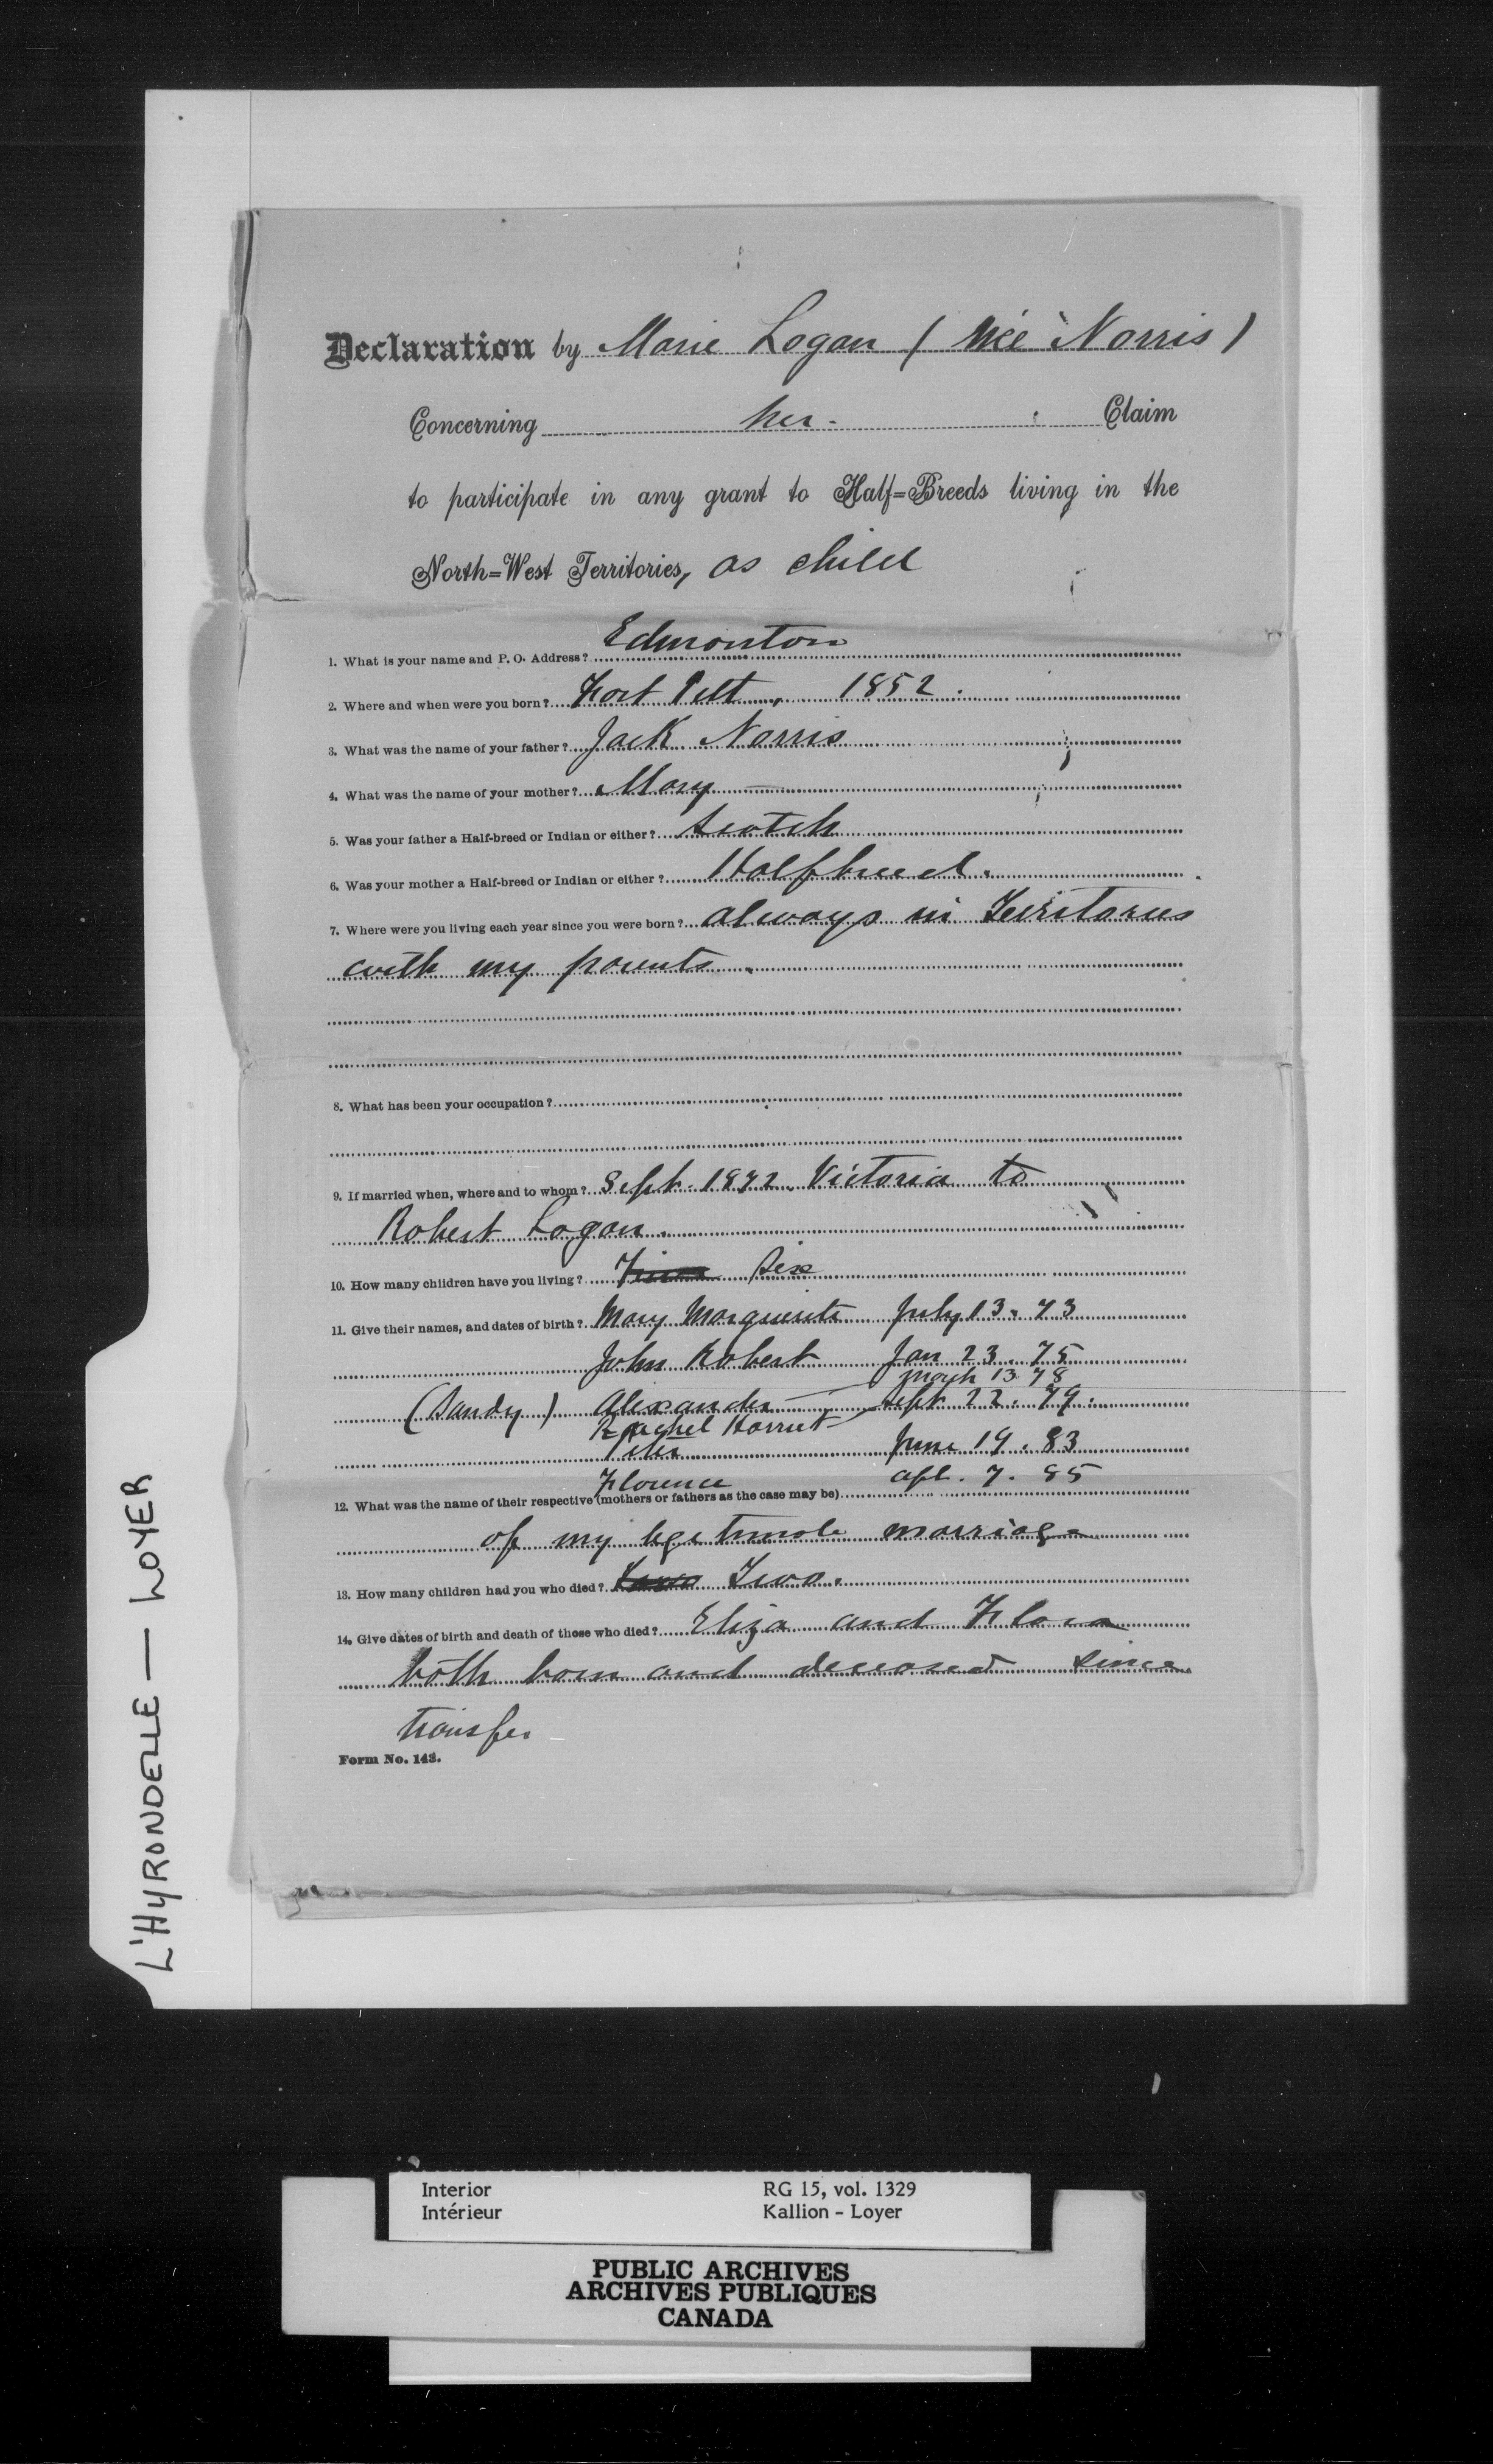 Declaration by Marie Logan ( Neé Norris )
Concerning her. Claim
to participate in any grant to Half=Breeds living in the
North=West Territories, as child
1. What is your name and P. O. Address? Edmonton
2. Where and when were you born? Fort Pitt, 1852.
3. What was the name of your father? Jack Norris
4. What was the name of your mother? Mary —
5. Was your father a Half-breed or Indian or either? Scotch
6. Was your mother a Half-breed or Indian or either? Halfbreed.
7. Where were you living each year since you were born? always in Territories
with my parents.
8. What has been your occupation?
9. If married when, where and to whom? Sept. 1872. Victoria to
Robert Logan.
10. How many children have you living? Six
11. Give their names, and dates of birth? Mary Marguerite July 13. 73
John Robert Jan 23. 75
March 13 78
(Sandy) Alexander — Sept 22. 79.
Rachel Harriet
Peter June 19. 83
Florence Apl. 7. 85
12. What was the name of their respective (mothers or fathers as the case may be)
of my legitimate marriage
13. How many children had you who died? Two Two.
14. Give dates of birth and death of those who died? Eliza and Flora
both born and deceased since
transfer
Form No. 143.
L'HYRONDELLE — LOYER
Interior RG 15, vol. 1329
Intérieur Kallion - Loyer
PUBLIC ARCHIVES
ARCHIVES PUBLIQUES
CANADA